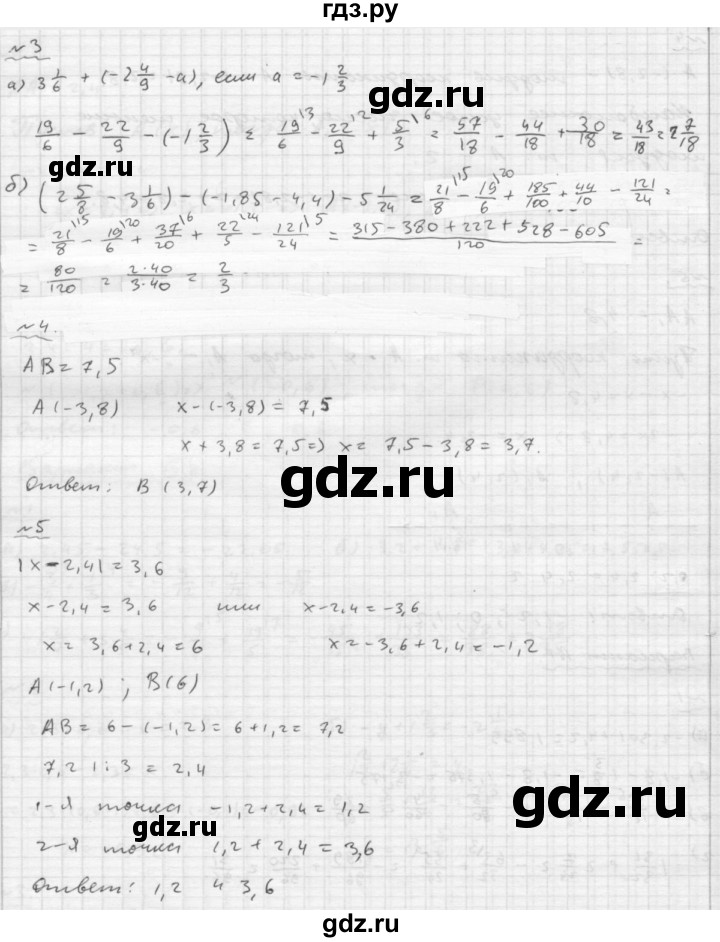 гдз.ру
№3
а) 3 1/6 + (-2 4/9 - a), если a = -1 2/3
19/6 - 22/9 - (-1 2/3) = 19/6 \3 - 22/9 \2 + 5/3 \6 = 57/18 - 44/18 + 30/18 = 43/18 = 2 7/18
gdz.ru
б) (2 5/8 - 3 1/6) - (-1,85 - 4,4) - 5 1/24 = 21/8 \15 - 19/6 \20 + 185/100 + 44/10 - 121/24 =
= 21/8 \15 - 19/6 \20 + 37/20 \6 + 22/5 \24 - 121/24 \5 = (315 - 380 + 222 + 528 - 605)/120 =
= 80/120 = 2·40/3·40 = 2/3.
№4.
AB = 7,5
A(-3,8) x - (-3,8) = 7,5
x + 3,8 = 7,5 => x = 7,5 - 3,8 = 3,7.
Ответ: B(3,7)
gdz.ru
№5
|x - 2,4| = 3,6
x - 2,4 = 3,6 или x - 2,4 = -3,6
x = 3,6 + 2,4 = 6 x = -3,6 + 2,4 = -1,2
A(-1,2); B(6)
AB = 6 - (-1,2) = 6 + 1,2 = 7,2
7,2 : 3 = 2,4
1-я точка -1,2 + 2,4 = 1,2
gdz.ru
gdz.ru
2-я точка 1,2 + 2,4 = 3,6
Ответ: 1,2 и 3,6
gdz.ru